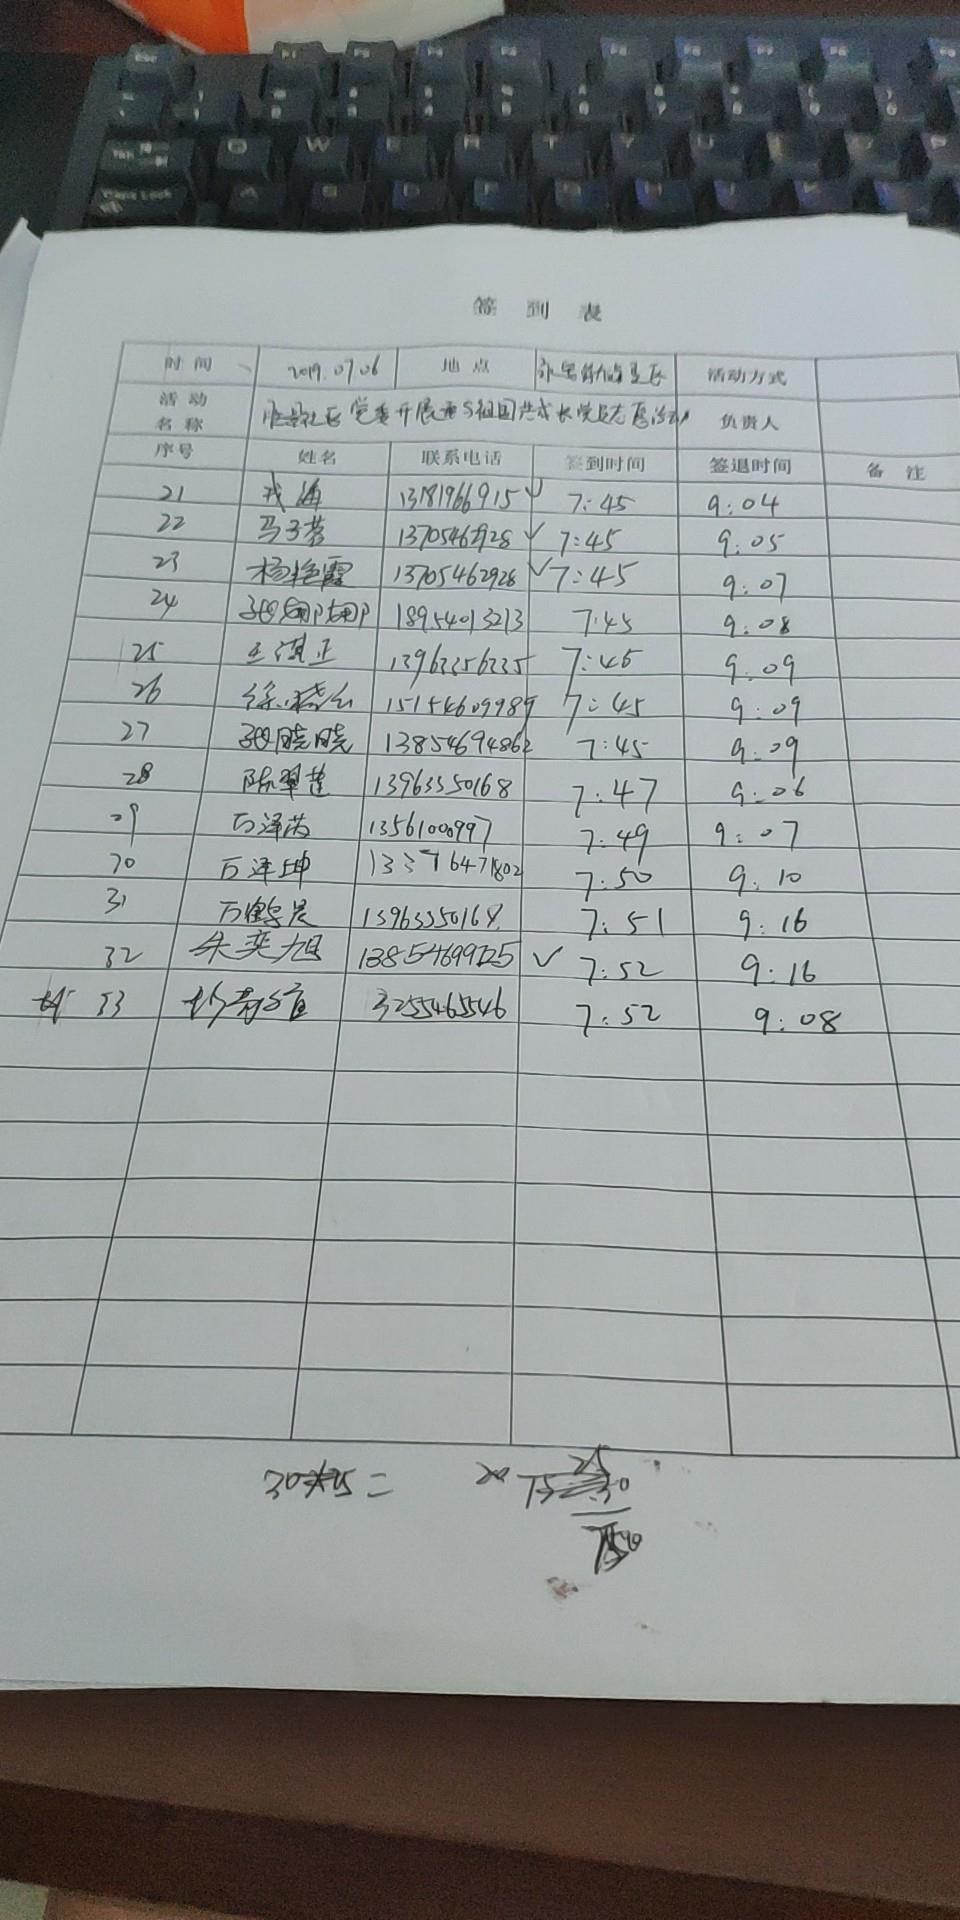 签 到 表
时 间 2019.07.06 地 点 活动方式
活 动
名 称 社区党委开展 与祖国共成长党员志愿活动 负责人
序号 姓名 联系电话 签到时间 签退时间 备 注
21 戎海 13181966915 ✓ 7:45 9:04
22 马子茗 ✓ 7:45 9:05
23 杨艳霞 13705462928 ✓ 7:45 9:07
24 张娜娜 18954013213 7:45 9:08
25 王淇正 13963256235 7:45 9:09
26 15154609989 7:45 9:09
27 张晓晓 13854694862 7:45 9:09
28 陈翠莲 13963350168 7:47 9:06
29 万泽芮 1356100997 7:49 9:07
30 万泽坤 13376471802 7:50 9:10
31 万鹤晨 13963350168 7:51 9:16
32 朱奕旭 ✓ 7:52 9:16
33 3255465546 7:52 9:08